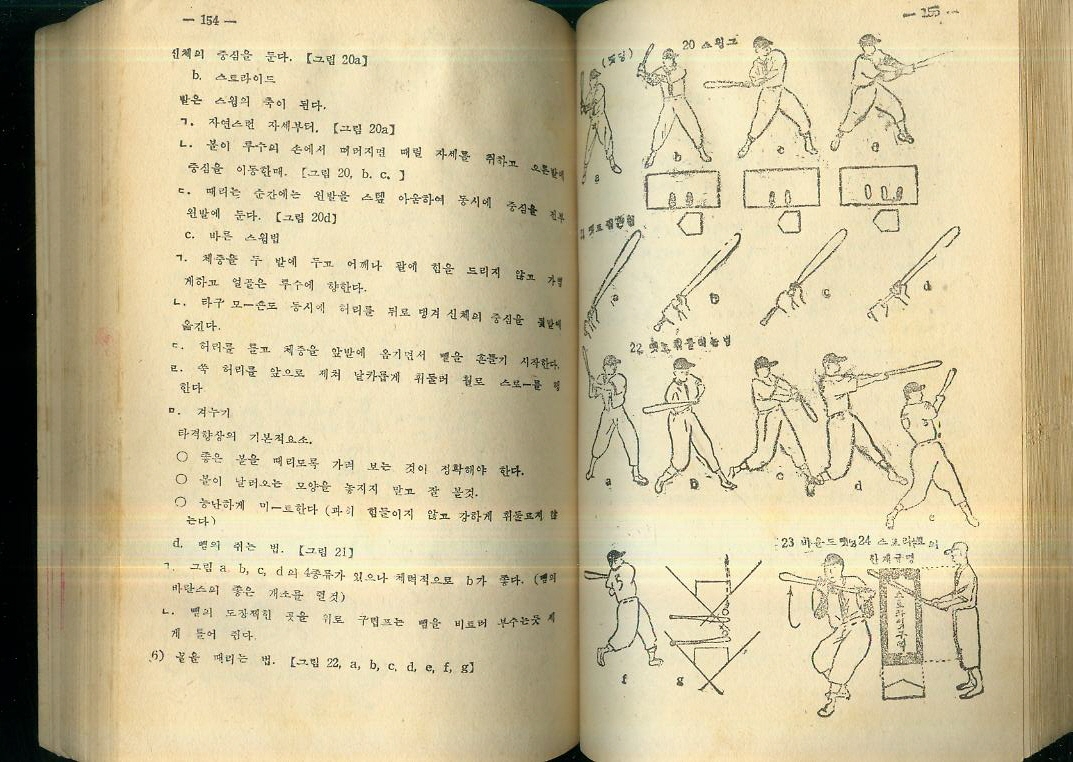 — 154 —
신체의 중심을 둔다. 【그림 20a】
b. 스트라이드
발은 스윙의 축이 된다.
ㄱ. 자연스런 자세부터. 【그림 20a】
ㄴ. 볼이 루수의 손에서 떠머지면 때릴 자세를 취하고 오른발에
중심을 이동한매. 【그림 20, b. c. 】
ㄷ. 때리는 순간에는 왼발을 스텦 아울하여 동시에 중심을 전부
왼발에 둔다. 【그림 20d】
c. 바른 스윙법
ㄱ. 체중을 두 발에 두고 어깨나 팔에 힘을 드리지 않고 가볍
게하고 얼골은 루수에 향한다.
ㄴ. 타구 모ー숀도 동시에 허리를 뒤로 댕겨 신체의 중심을 뒷발에
옮긴다.
ㄷ. 허리를 틀고 체중을 앞발에 옴기면서 뱉을 흔들기 시작한다.
ㄹ. 쑥 허리를 앞으로 제쳐 날카롭게 휘둘러 휠로 스로ー를 행
한다
ㅁ. 겨누기
타격향상의 기본적요소.
○ 좋은 볼을 때리도록 가려 보는 것이 정확해야 한다.
○ 볼이 날러오는 모양을 놓지지 말고 잘 볼것.
○ 능난하게 미ー트한다 (과히 힘들이지 않고 강하게 휘둘르게 않
는다)
d. 뱉의 쥐는 법. 【그림 21】
ㄱ. 그림 a b, c, d의 4종류가 있으나 체력적으로 b가 좋다. (뱉의
바란스의 좋은 개소를 쥘것)
ㄴ. 뱉의 도장찍힌 곳을 위로 구립프는 뱉을 비르러 부수는듯 세
게 틀어 쥔다.
6) 볼을 때리는 법. 【그림 22, a, b, c, d, e, f, g】
— 155 —
20 스윙그
(뱃딩)
a
b
c
d
a
b
c
d
22
a
b
c
d
e
23 바운드
24 스트라익의
한계규명
스트라익구역
f
g